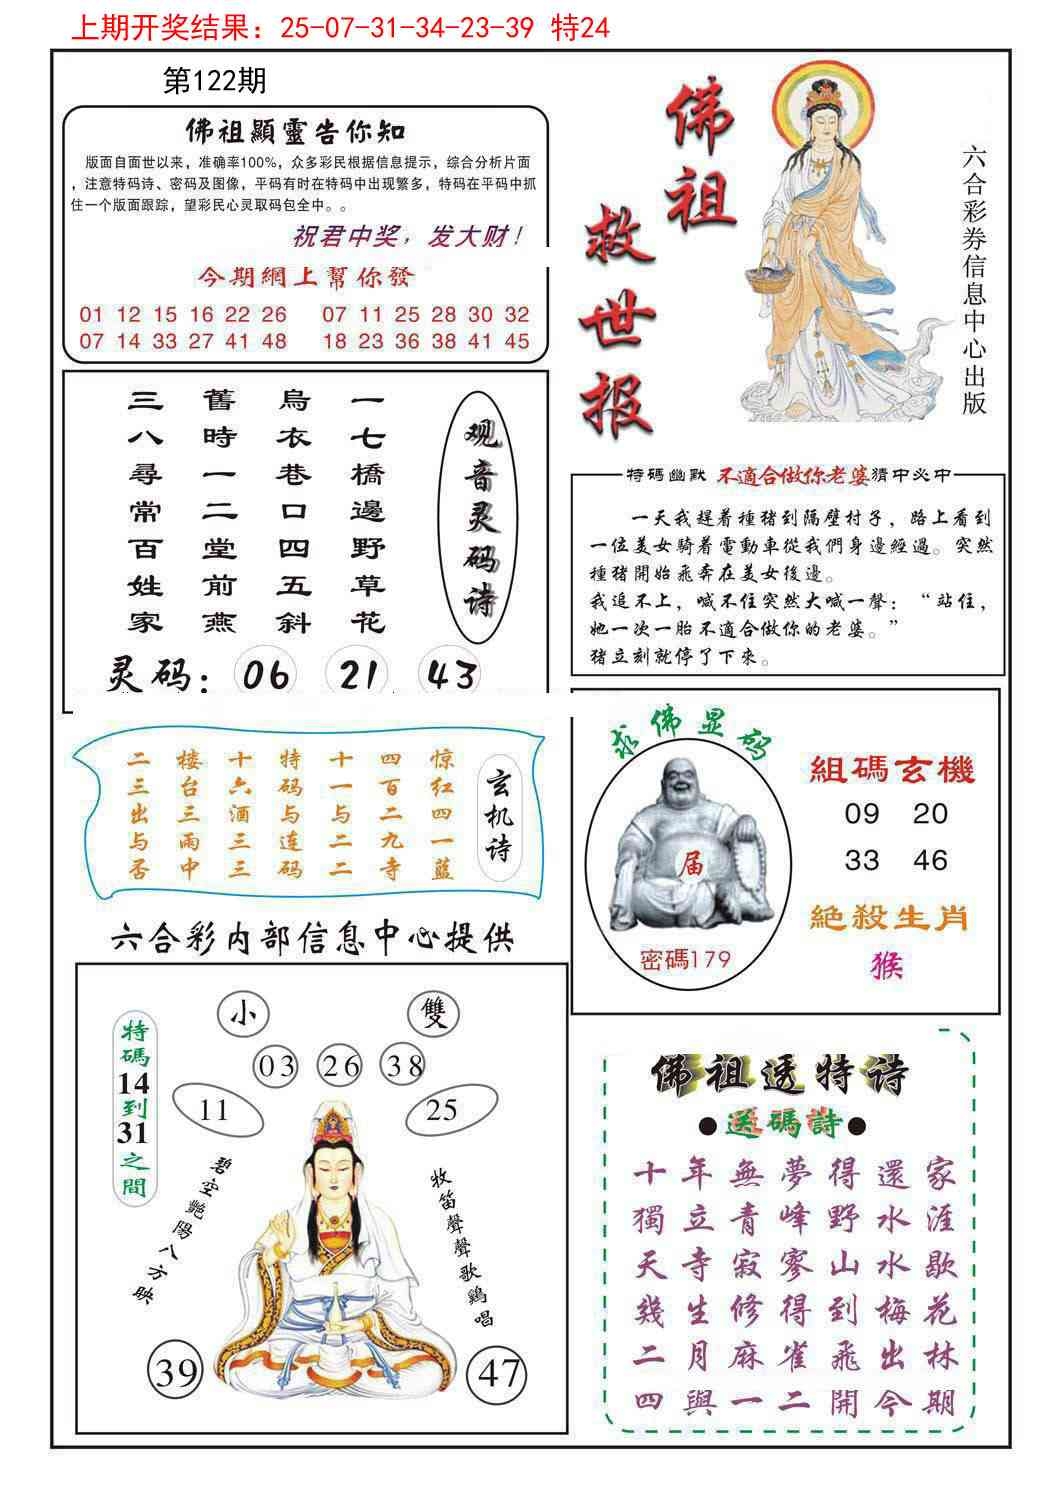 上期开奖结果：25-07-31-34-23-39 特24
第122期
佛祖顯靈告你知
版面自面世以来，准确率100%，众多彩民根据信息提示，综合分析片面
，注意特码诗、密码及图像，平码有时在特码中出现繁多，特码在平码中抓
住一个版面跟踪，望彩民心灵取码包全中。。
祝君中奖，发大财！
今期網上幫你發
01 12 15 16 22 26 07 11 25 28 30 32
07 14 33 27 41 48 18 23 36 38 41 45
佛祖救世报
六合彩券信息中心出版
观音灵码诗
一七橋邊野草花
烏衣巷口四五斜
舊時一二堂前燕
三八尋常百姓家
灵码：06 21 43
特碼幽默 不適合做你老婆猜中必中
一天我趕着種猪到隔壁村子，路上看到
一位美女騎着電動車從我們身邊經過。突然
種猪開始飛奔在美女後邊。
我追不上，喊不住突然大喊一聲：“站住，
她一次一胎不適合做你的老婆。”
猪立刻就停了下來。
玄机诗
惊红四一蓝
四百二九寺
十一与二二
特码与连码
十六酒三三
楼台三雨中
二三出与否
求佛显码
届
密碼179
組碼玄機
09 20
33 46
絶殺生肖
猴
六合彩内部信息中心提供
小 雙
03 26 38
11 25
特碼14到31之間
碧空艷陽八方映
牧笛聲聲歌鷄唱
39 47
佛祖透特诗
●送碼詩●
十年無夢得還家
獨立青峰野水涯
天寺寂寥山水歇
幾生修得到梅花
二月麻雀飛出林
四與一二開今期